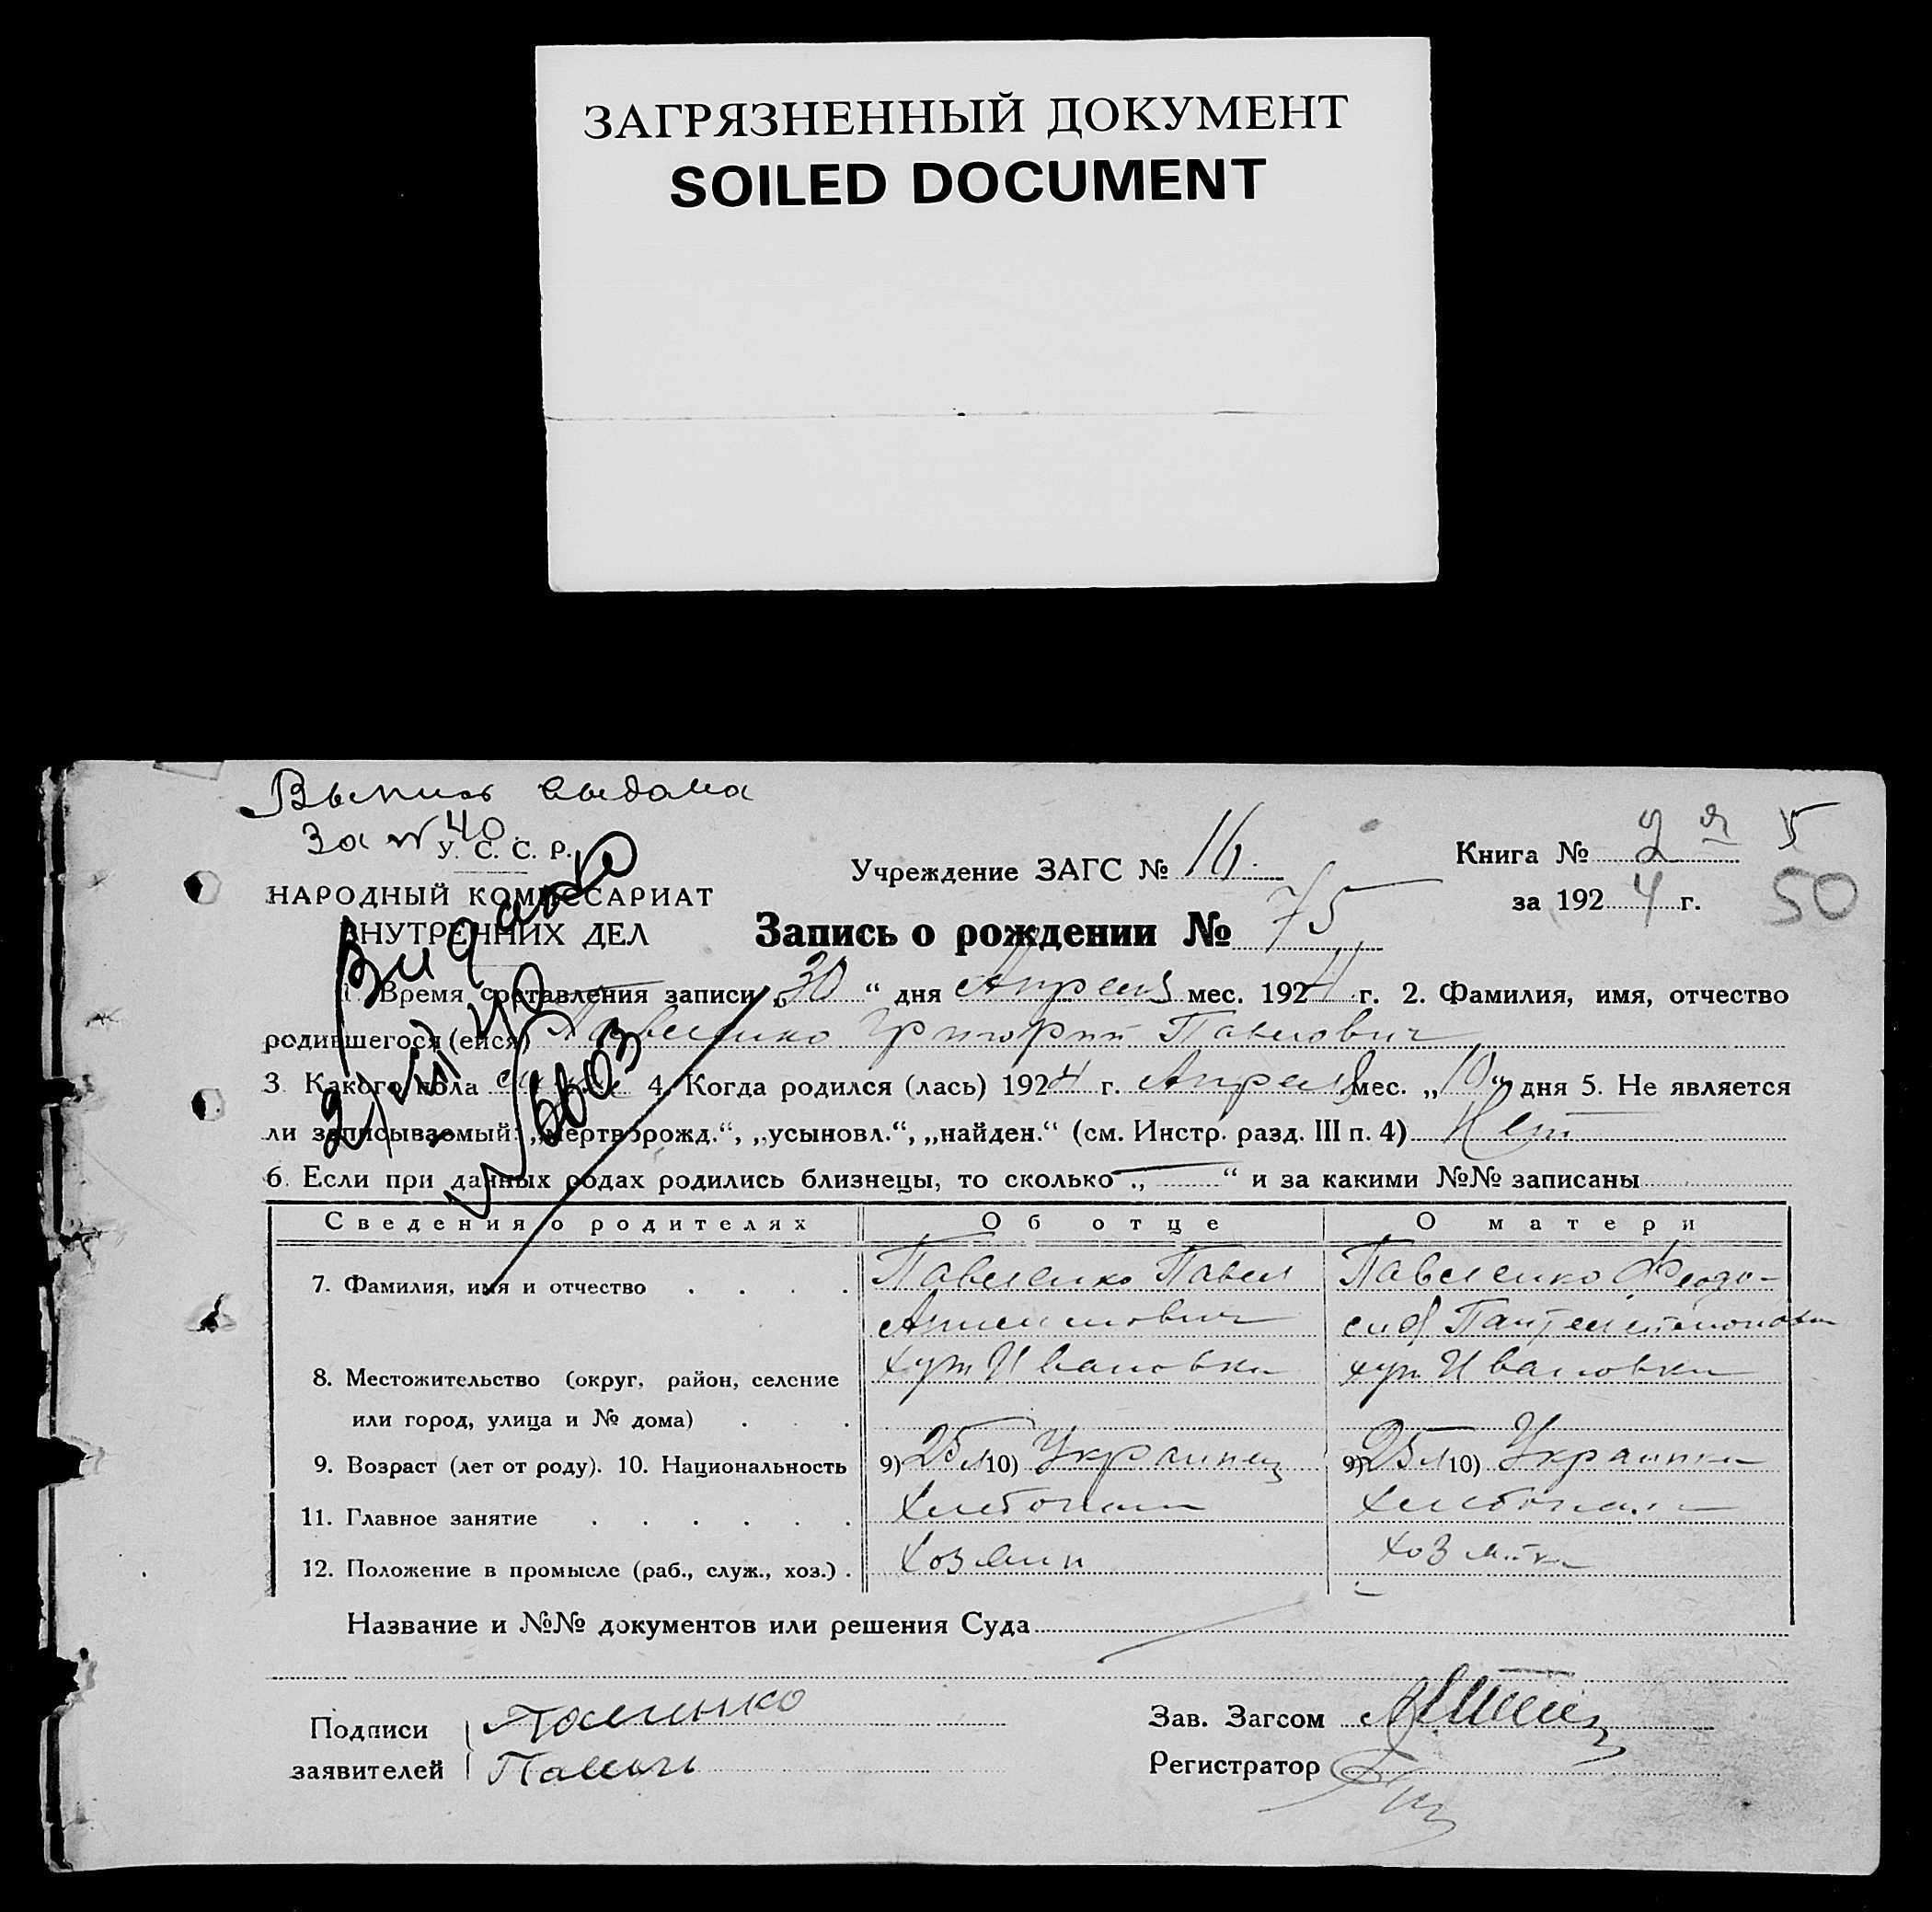 ЗАГРЯЗНЕННЫЙ ДОКУМЕНТ
SOILED DOCUMENT
Выпись выдана
за № 40
У. С. С. Р.
НАРОДНЫЙ КОМИССАРИАТ
ВНУТРЕННИХ ДЕЛ
Учреждение ЗАГС № 16.
Книга № 2 я 5
за 1924 г. 50
Запись о рождении № 75
1. Время составления записи „30“ дня Апреля мес. 1924 г. 2. Фамилия, имя, отчество
родившегося (ейся) Павленко Григорий Павлович
3. Какого пола 4. Когда родился (лась) 1924 г. Апреля мес. „10“ дня 5. Не является
ли записываемый: „мертворожд.“, „усыновл.“, „найден.“ (см. Инстр. разд. III п. 4) Нет
6. Если при данных родах родились близнецы, то сколько „ “ и за какими №№ записаны
Сведения о родителях Об отце О матери
7. Фамилия, имя и отчество Павленко Павел Павленко Феодо-
сия
8. Местожительство (округ, район, селение хут Ивановка хут Ивановка
или город, улица и № дома)
9. Возраст (лет от роду). 10. Национальность 9) 25 л 10) Украинец 9) 25 л 10) Украинка
11. Главное занятие
12. Положение в промысле (раб., служ., хоз.) Хозяин хозяйка
Название и №№ документов или решения Суда
Подписи
заявителей
Зав. Загсом
Регистратор